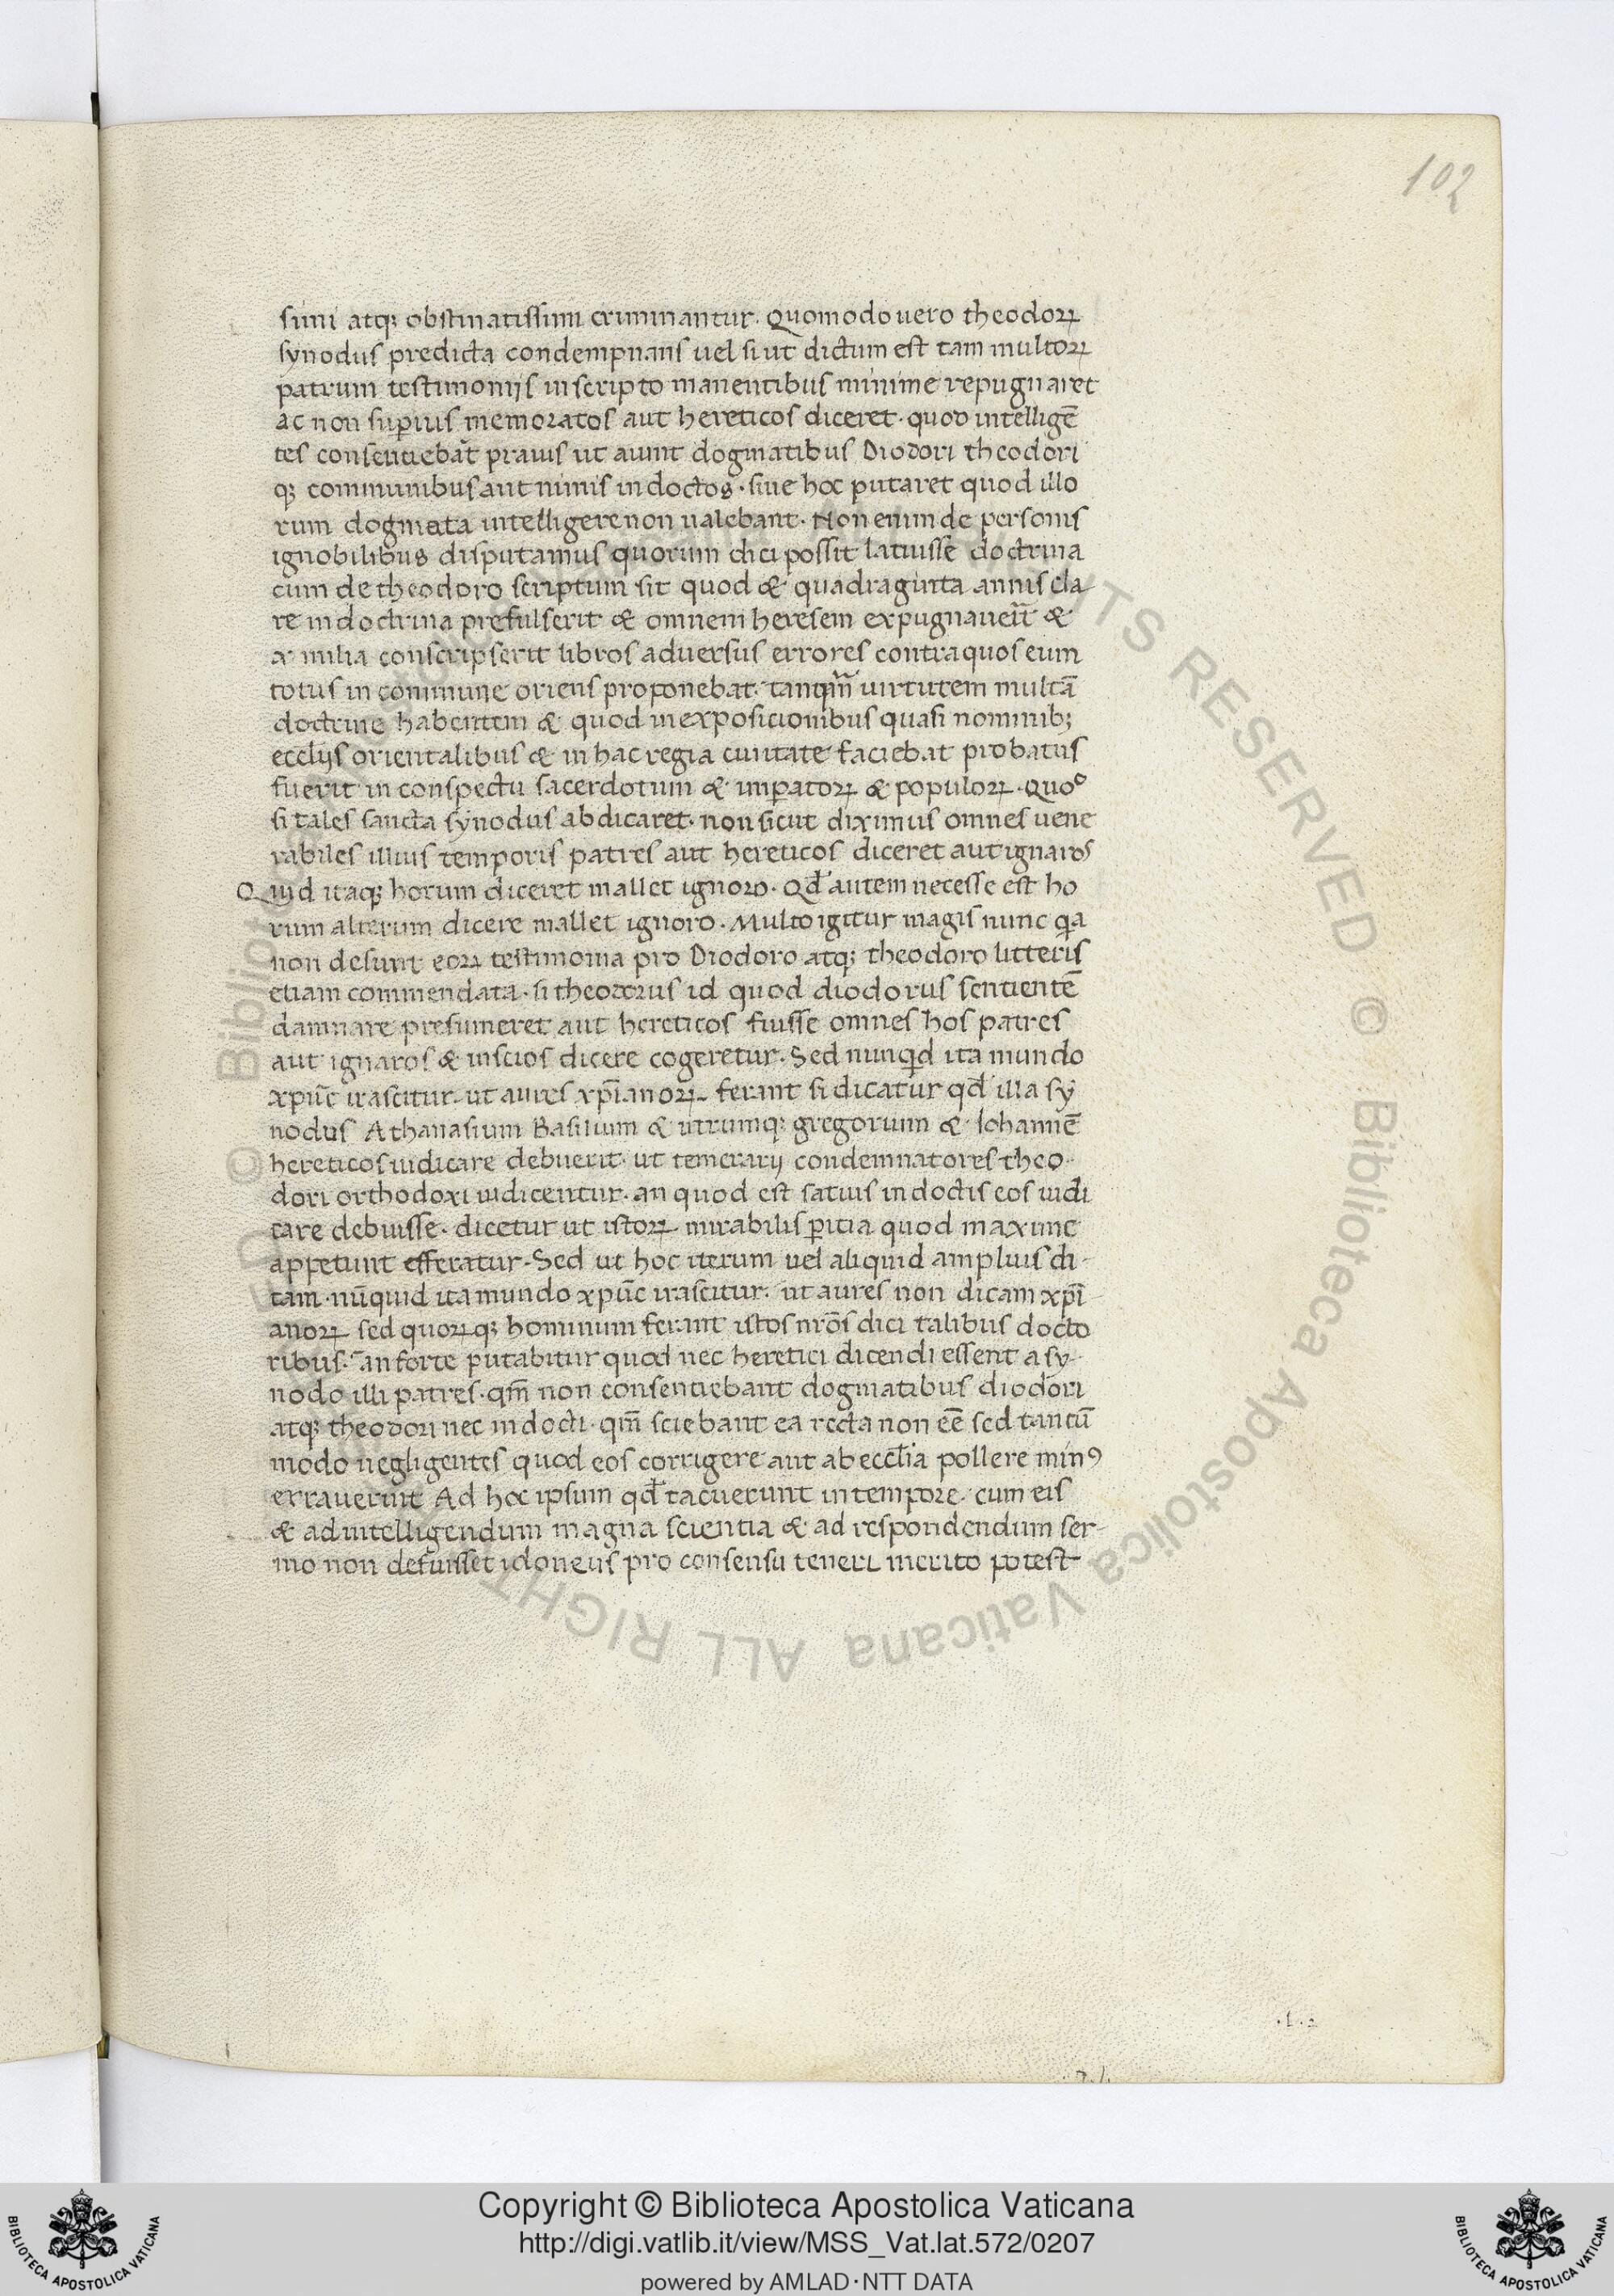 102
simi atq; obstinatissimi criminantur. Quomodo uero theodoꝝ
synodus predicta condempnans uel si ut dictum est tam multoꝝ
patrum testimonijs in scripto manentibus minime repugnaret
ac non suꝑius memoratos aut hereticos diceret · quod intelligē
tes consentiebāt prauis ut aiunt dogmatibus Diodori theodori
q; communibus aut nimis indoctos · siue hoc putaret quod illo
rum dogmata intelligere non ualebant · Non enim de personis
ignobilibus disputamus quorum dici possit latuisse doctrina
cum de theodoro scriptum sit quod & quadraginta annis cla
re in doctrina prefulserit & omnem heresem expugnauerīt &
x milia conscripserit libros aduersus errores contra quos eum
totus in commune oriens proponebat · tanqm̄ uirtutem multā
doctrine habentem & quod in exposicionibus quasi nominib;
eccl̄ijs orientalibus & in hac regia ciuitate faciebat probatus
fuerit in conspectu sacerdotum & imꝑatoꝝ & populoꝝ · Quod
si tales sancta synodus abdicaret · non sicut diximus omnes uene
rabiles illius temporis patres aut hereticos diceret aut ignaros
Quid itaq; horum diceret mallet ignoro · Qd̄ autem necesse est ho
rum alterum dicere mallet ignoro · Multo igitur magis nunc qia
non desunt eoꝝ testimonia pro Diodoro atq; theodoro litteris
etiam commendata · si theodorus id quod diodorus sentientē
damnare presumeret aut hereticos fuisse omnes hos patres
aut ignaros & inscios dicere cogeretur · Sed nunqid ita mundo
xpūc irascitur · ut aures xp̄ianoꝝ ferant si dicatur qd̄ illa sy
nodus Athanasium Basilium & utrumq; gregorium & Iohannē
hereticos iudicare debuerit · ut temerarij condemnatores theo
dori orthodoxi iudicentur · an quod est satius indoctis eos iudi
care debuisse · dicetur ut istoꝝ mirabilis ꝑitia quod maxime
appetunt efferatur · Sed ut hoc iterum uel aliquid amplius di
cam · nūquid ita mundo xpūc irascitur · ut aures non dicam xp̄i
anoꝝ sed quoꝝq; hominum ferant istos nr̄os dici talibus docto
ribus · an forte putabitur quod nec heretici dicendi essent a sy
nodo illi patres · qm̄ non consentiebant dogmatibus diodori
atq; theodori nec indocti · qm̄ sciebant ea recta non eē sed tantū
modo negligentes quod eos corrigere aut ab eccl̄ia pollere minꝰ
errauerint Ad hoc ipsum qd̄ tacuerunt in tempore · cum eis
& ad intelligendum magna scientia & ad respondendum ser
mo non defuisset idoneus pro consensu teneri merito potest
Copyright © Biblioteca Apostolica Vaticana
http://digi.vatlib.it/view/MSS_Vat.lat.572/0207
powered by AMLAD·NTT DATA